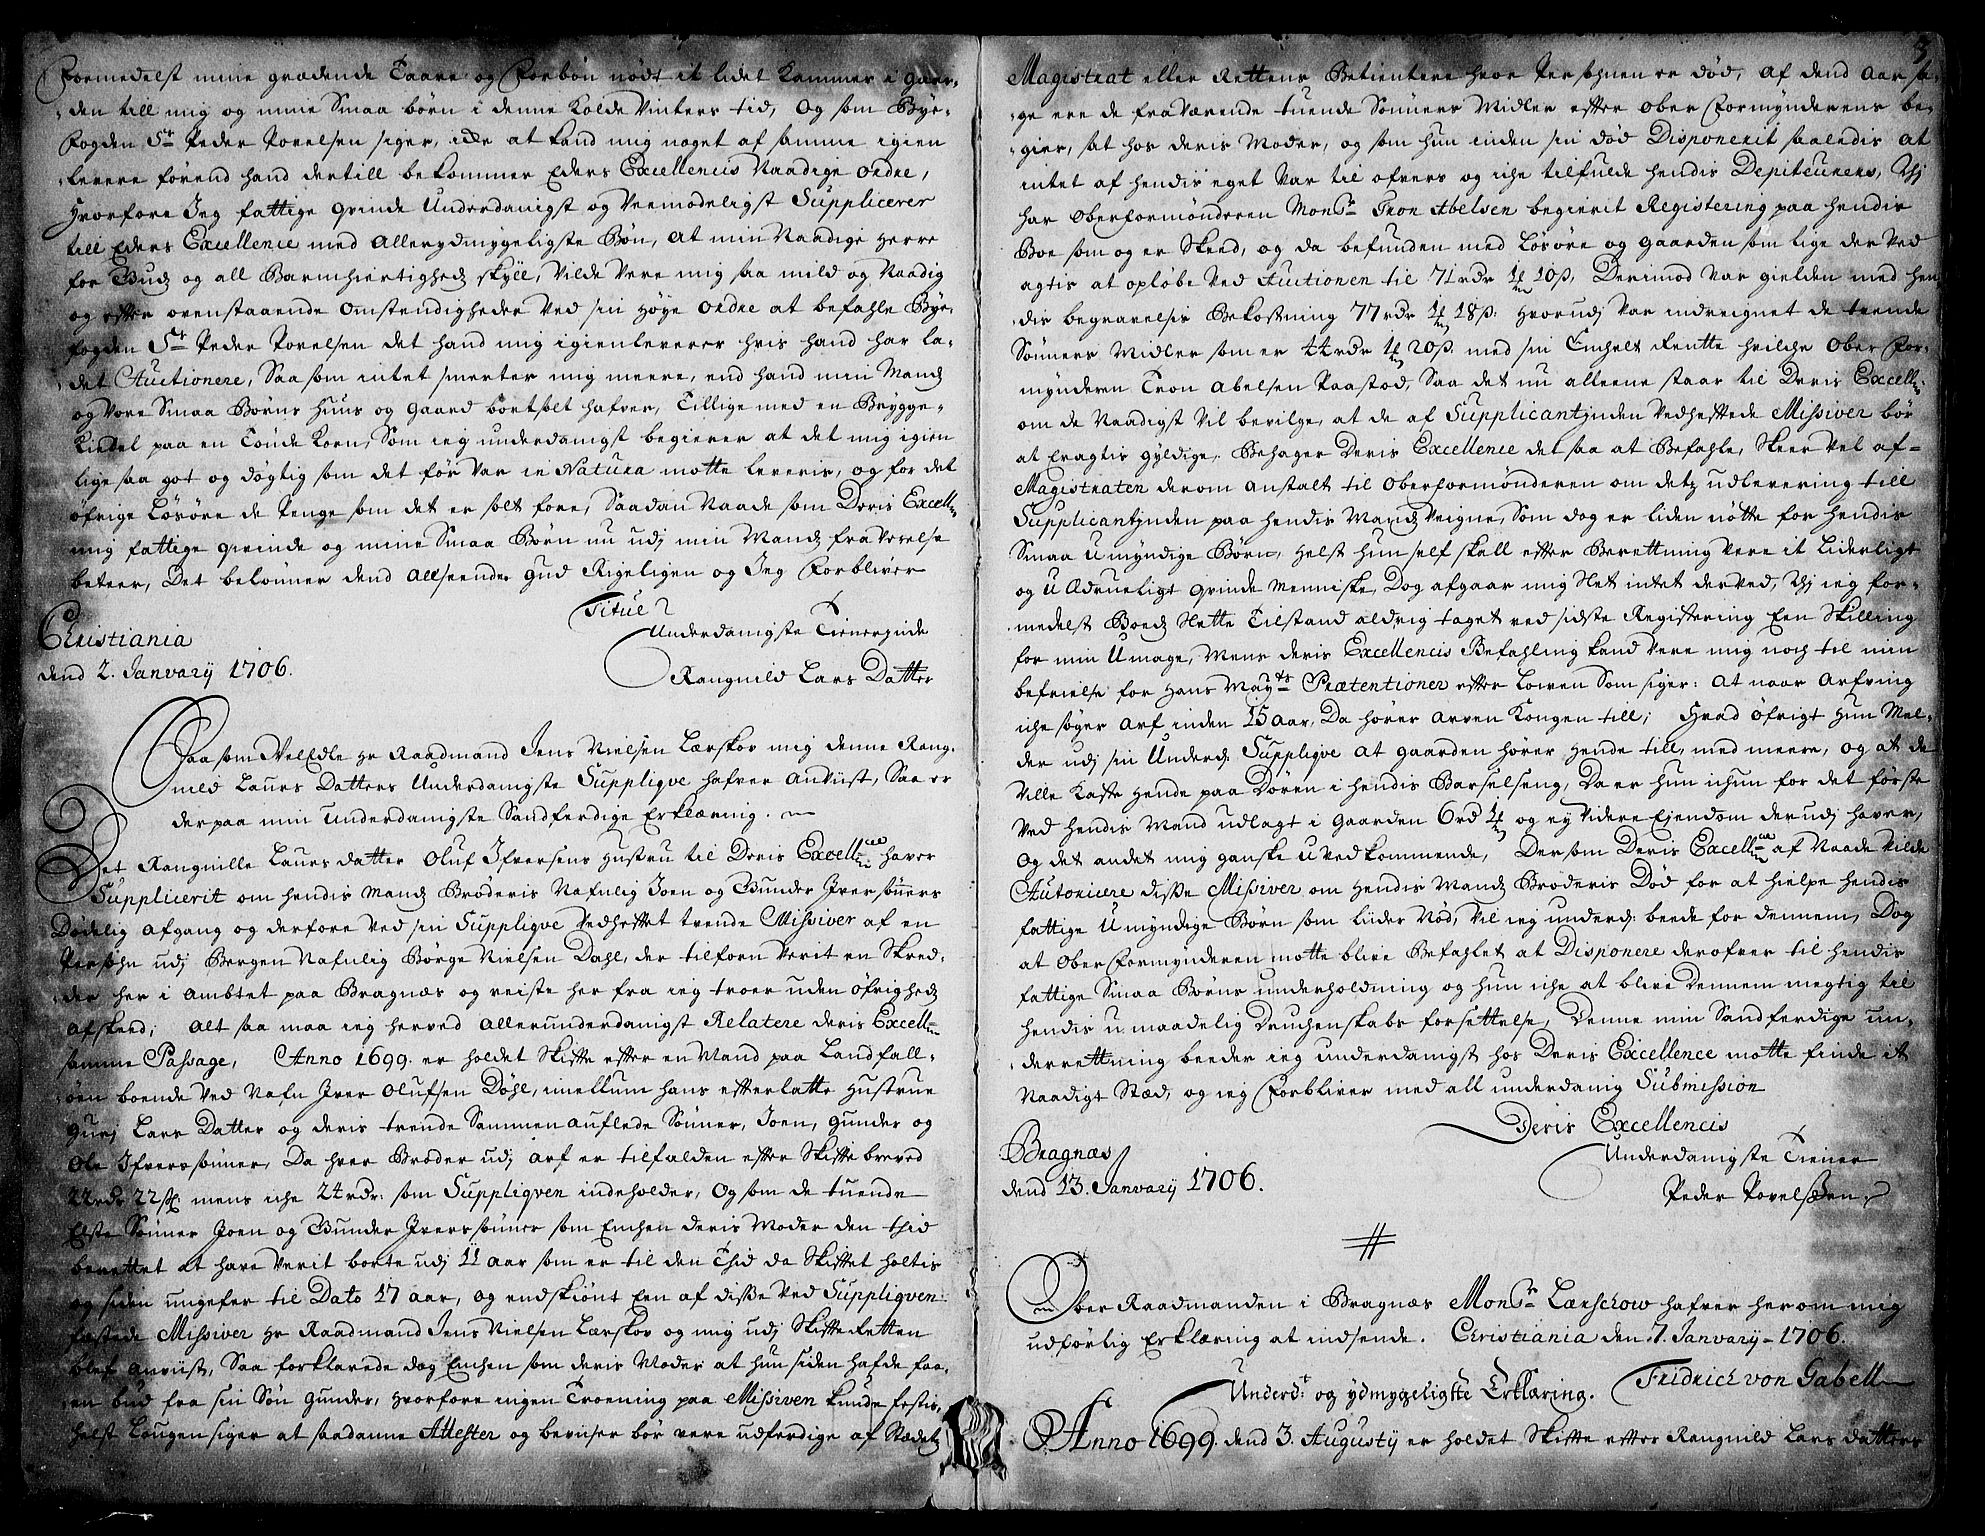 Formedelst mine grædende Taare og Forbøn nødt it lidet Kammer i gaar-
den till mig og mine Smaa børn i denne Kolde Vinters tid, og som Bye-
fogden Sr Peder Povelsen siger, icke at kand mig noget af samme igien
levere førend hand dertill bekommer Eders Excellencis Naadige ordre,
Hvorfore Jeg fattige qvinde Underdanigst og Veemodeligst Supplicerer
till Eders Excellence med Allerydmygeligste Bøn, at min Naadige Herre
for Guds og all Barmhiertigheds skyll, Vilde Vere mig saa mild og Naadig
og efter ovenstaaende Omstendigheder Ved sin Høye ordre at befahle Bye-
fogden Sr Peder Povelsen det hand mig igienleverer hvis hand har la-
det Auctionere, Saa som intet smerter mig meere, end hand min Mands
og Vore Smaa Børns Huus og gaard bortsolt hafver, Tillige med en Brygge-
Kiedel paa en Tønde Korn, Som ieg underdanigst begierer at det mig igien
lige saa got og døgtig som det før Var in Natura motte leveris, og for det
øfrige Løsøre de Penge som det er solt fore, Saadan Naade som Deris Excell:
mig fattige qvinde og mine Smaa Børn nu udj min Mands fraverelse
beteer, Det belønner dend Allseende Gud Rigeligen og Jeg Forbliver
Titul
Underdanigste Tienerinde
Christiania
dend 2. Janvarij 1706.
Rangnild Lars Datter
Saasom VelEdle Hr Raadmand Jens Nielsen Lærskov mig denne Rang-
nild Laurs Datters Underdanigste Suppliqve hafver Anviist, Saa er
derpaa min underdanigste Sandferdige Erklæring.
Det Rangnille Laursdatter Oluf Ifversens Hustru til Deris Excellence haver
Supplicerit om hendis Mands Brøderis Nafnlig Joen og Gunder Iversønners
Dødelig Afgang og derfore Ved sin Suppliqve Vedheftet trende Missiver af en
Persohn udj Bergen Nafnlig Børge Nielsen Dahl, der tilforn Verit en Skred-
der her i Ambtet paa Bragnæs og reiste her fra ieg troer uden Øfrigheds
Afskeed; Alt saa maa ieg herved Allerunderdanigst Relatere deris Excell:
samme Passage, Anno 1699. er holdet Skifte efter en Mand paa Landfall-
øen boende Ved Nafn Iver Olufsen Døhl, imellum hans efterlatte Hustrue
Gurj Lars Datter og deris trende Sammen auflede Sønner, Joen, Gunder og
Ole Ifversønner, Da hver Broder udj Arf er tilfalden efter Skiftebreved
22 rdr 22 sk: mens iche 24 rdr: som Suppliqven indeholder, og som de tuende
Elste Sønner Joen og Gunder Iversønner som Enchen deris Moder den thid
berettet at have Verit borte udj 11 aar som er til den Thid da Skiftet holtis
og siden ungefer til Dato 17 aar, og endskiønt Een af disse Ved Suppliqven
festede Missiver Hr Raadmand Jens Nielsen Lærskov og mig udj Skifte Retten
blef Anviist, Saa forklarede dog Enchen som deris Moder at hun siden hafde faa-
en bud fra sin Søn Gunder, Hvorfore ingen Troening paa Missiven kunde festis,
helst Lougen siger at saadanne Attester og beviser bør vere udferdige af Stædets
3
Magistrat eller Rettens Betientere hvor Persohnen er død, af dend Aarsa-
ge ere de fraværende tuende Sønners Midler efter Ober Formynderens be-
gier, sat hos deris Moder, og som hun inden sin død Disponerit saaledis at
intet af hendis eget Var til ofvers og iche tilfulde hendis Depiteurens, Thj
har Oberformønderen Monsr Tron Abelsen begierit Registering paa hendis
Boe som og er skeed, og da befunden med Løsøre og gaarden som lige der ved
agtis at opløbe Ved Auctionen til 71 rdr 1 10 s, Derimod Var gielden med hen-
dis begravelsis Bekostning 77 rdr 18 s: hvorudj Var indreignet de tvende
Sønners Midler som er 44 rdr 20 s. med sin Enchelt Rentte hvilche Ober For-
mynderen Tron Abelsen Paastod, Saa det nu alleene staar til Deris Excell:
om de Naadigst Vil bevilge, at de af Supplicantinden Vedheftede Missiver bør
at Eragtis gyldige, Behager Deris Excellence det saa at Befahle, Skeer Vel af
Magistraten derom Anstalt til Oberformønderen om dets udlevering till
Supplicantinden paa hendis Mands Veigne, Som dog er liden nøtte for hendis
Smaa Umyndige Børn, helst hun self skall efter Berettning Vere it Liderligt
og U Ædrueligt qvinde Menniske, Dog afgaar mig slet intet derved, Thj ieg for-
medelst Boeds slette Tilstand aldrig taget ved sidste Registering Een Skilling
for min Umage, Mens deris Excellencis Befahling kand Vere mig noch til min
befrielse for Hans Mayts Prætentioner efter Lowen Som siger: At naar Arfving
iche søger Arf inden 15 aar, Da hører Arven Kongen till; Hvad øfrigt Hun Mel-
der udj sin Underd: Suppliqve at gaarden hører hende till, med meere, og at de
Ville Kaste Hende paa Døren i hendis Barselseng, Da er hun ichun for det første
Ved Hendis Mand udlagt i Gaarden 6 rd og ey Videre Ejendom derudj haver,
Og det andet mig ganske uvedkommende, Dersom Deris Excellence af Naade Vilde
Autoricere disse Missiver om Hendis Mands Brøderis Død for at hielpe hendis
fattige Umyndige Børn som liider Nød, Vil ieg underd: beede for dennem, Dog
at Ober Formynderen motte blive Befahlet at Disponere derofver til hendis
fattige Smaa Børns underholdning og hun iche at blive Dennem megtig til
hendis umaadelig Druchenskabs forsettelse, Denne min Sandferdige un-
derrettning beeder ieg underdanigst hos Deris Excellence motte finde it
Naadigt Stæd, og ieg Forbliver med all underdanig Submission
Deris Excellencis
Bragnæs
dend 13. Janvarij 1706.
Underdanigste Tiener
Peder Povelssen
Ober Raadmanden i Bragnæs Monsr Lærschow hafver herom mig
udførlig Erklæring at indsende. Christiania den 7. Janvarij 1706.
Fridrich von Gabell
Underdt og ydmygeligste Erklæring.
Anno 1699. dend 3. Augustij er holdet Skifte efter Rangnild Lars datters